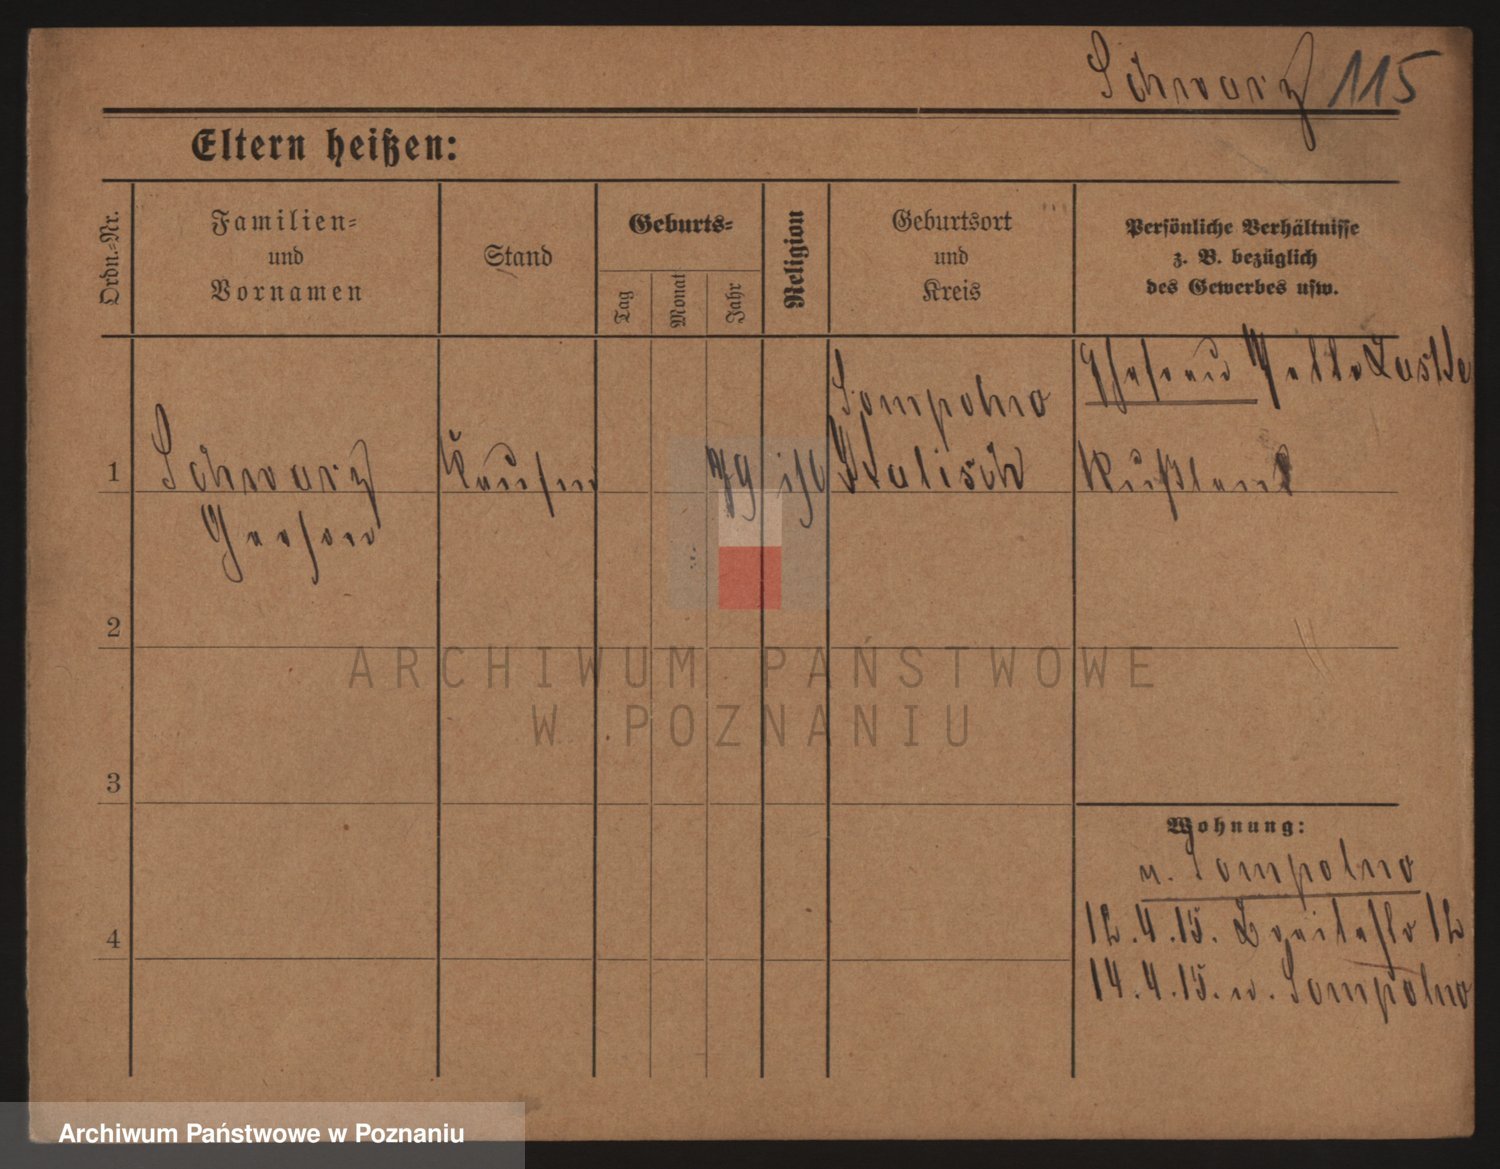 Schwarz 115
Eltern heißen:
Ordn.-Nr.
Familien-
und
Vornamen
Stand
Geburts-
Tag
Monat
Jahr
Religion
Geburtsort
und
Kreis
Persönliche Verhältnisse
z. B. bezüglich
des Gewerbes usw.
1
Schwarz
Gerson
Kaufm
79
isr
Sompolno
Kalisch
Ehefrau
Rußland
2
3
4
Wohnung:
n. Sompolno
12.4.15. 12
14.4.15. n. Sompolno
ARCHIWUM PAŃSTWOWE
W POZNANIU
Archiwum Państwowe w Poznaniu